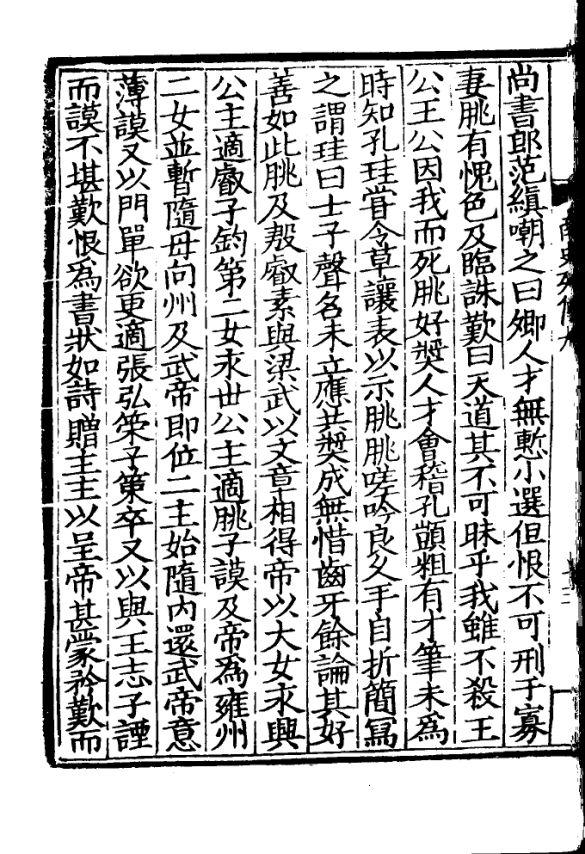 尚書郎范縝嘲之曰卿人才無慙小選但恨不可刑于寡
妻朓有愧色及臨誅歎曰天道其不可昧乎我雖不殺王
公王公因我而死朓好奬人才會稽孔顗粗有才筆未為
時知孔珪甞令草讓表以示朓朓嗟吟良久手自折簡冩
之謂珪曰士子聲名未立應共奬成無惜齒牙餘論其好
善如此朓及殷叡素與梁武以文章相得帝以大女永興
公主適叡子鈞第二女永世公主適朓子謨及帝為雍州
二女並暫隨母向州及武帝即位二主始隨内還武帝意
薄謨又以門單欲更適張弘策子策卒又以與王志子諲
而謨不堪歎恨為書狀如詩贈主主以呈帝甚蒙矜歎而